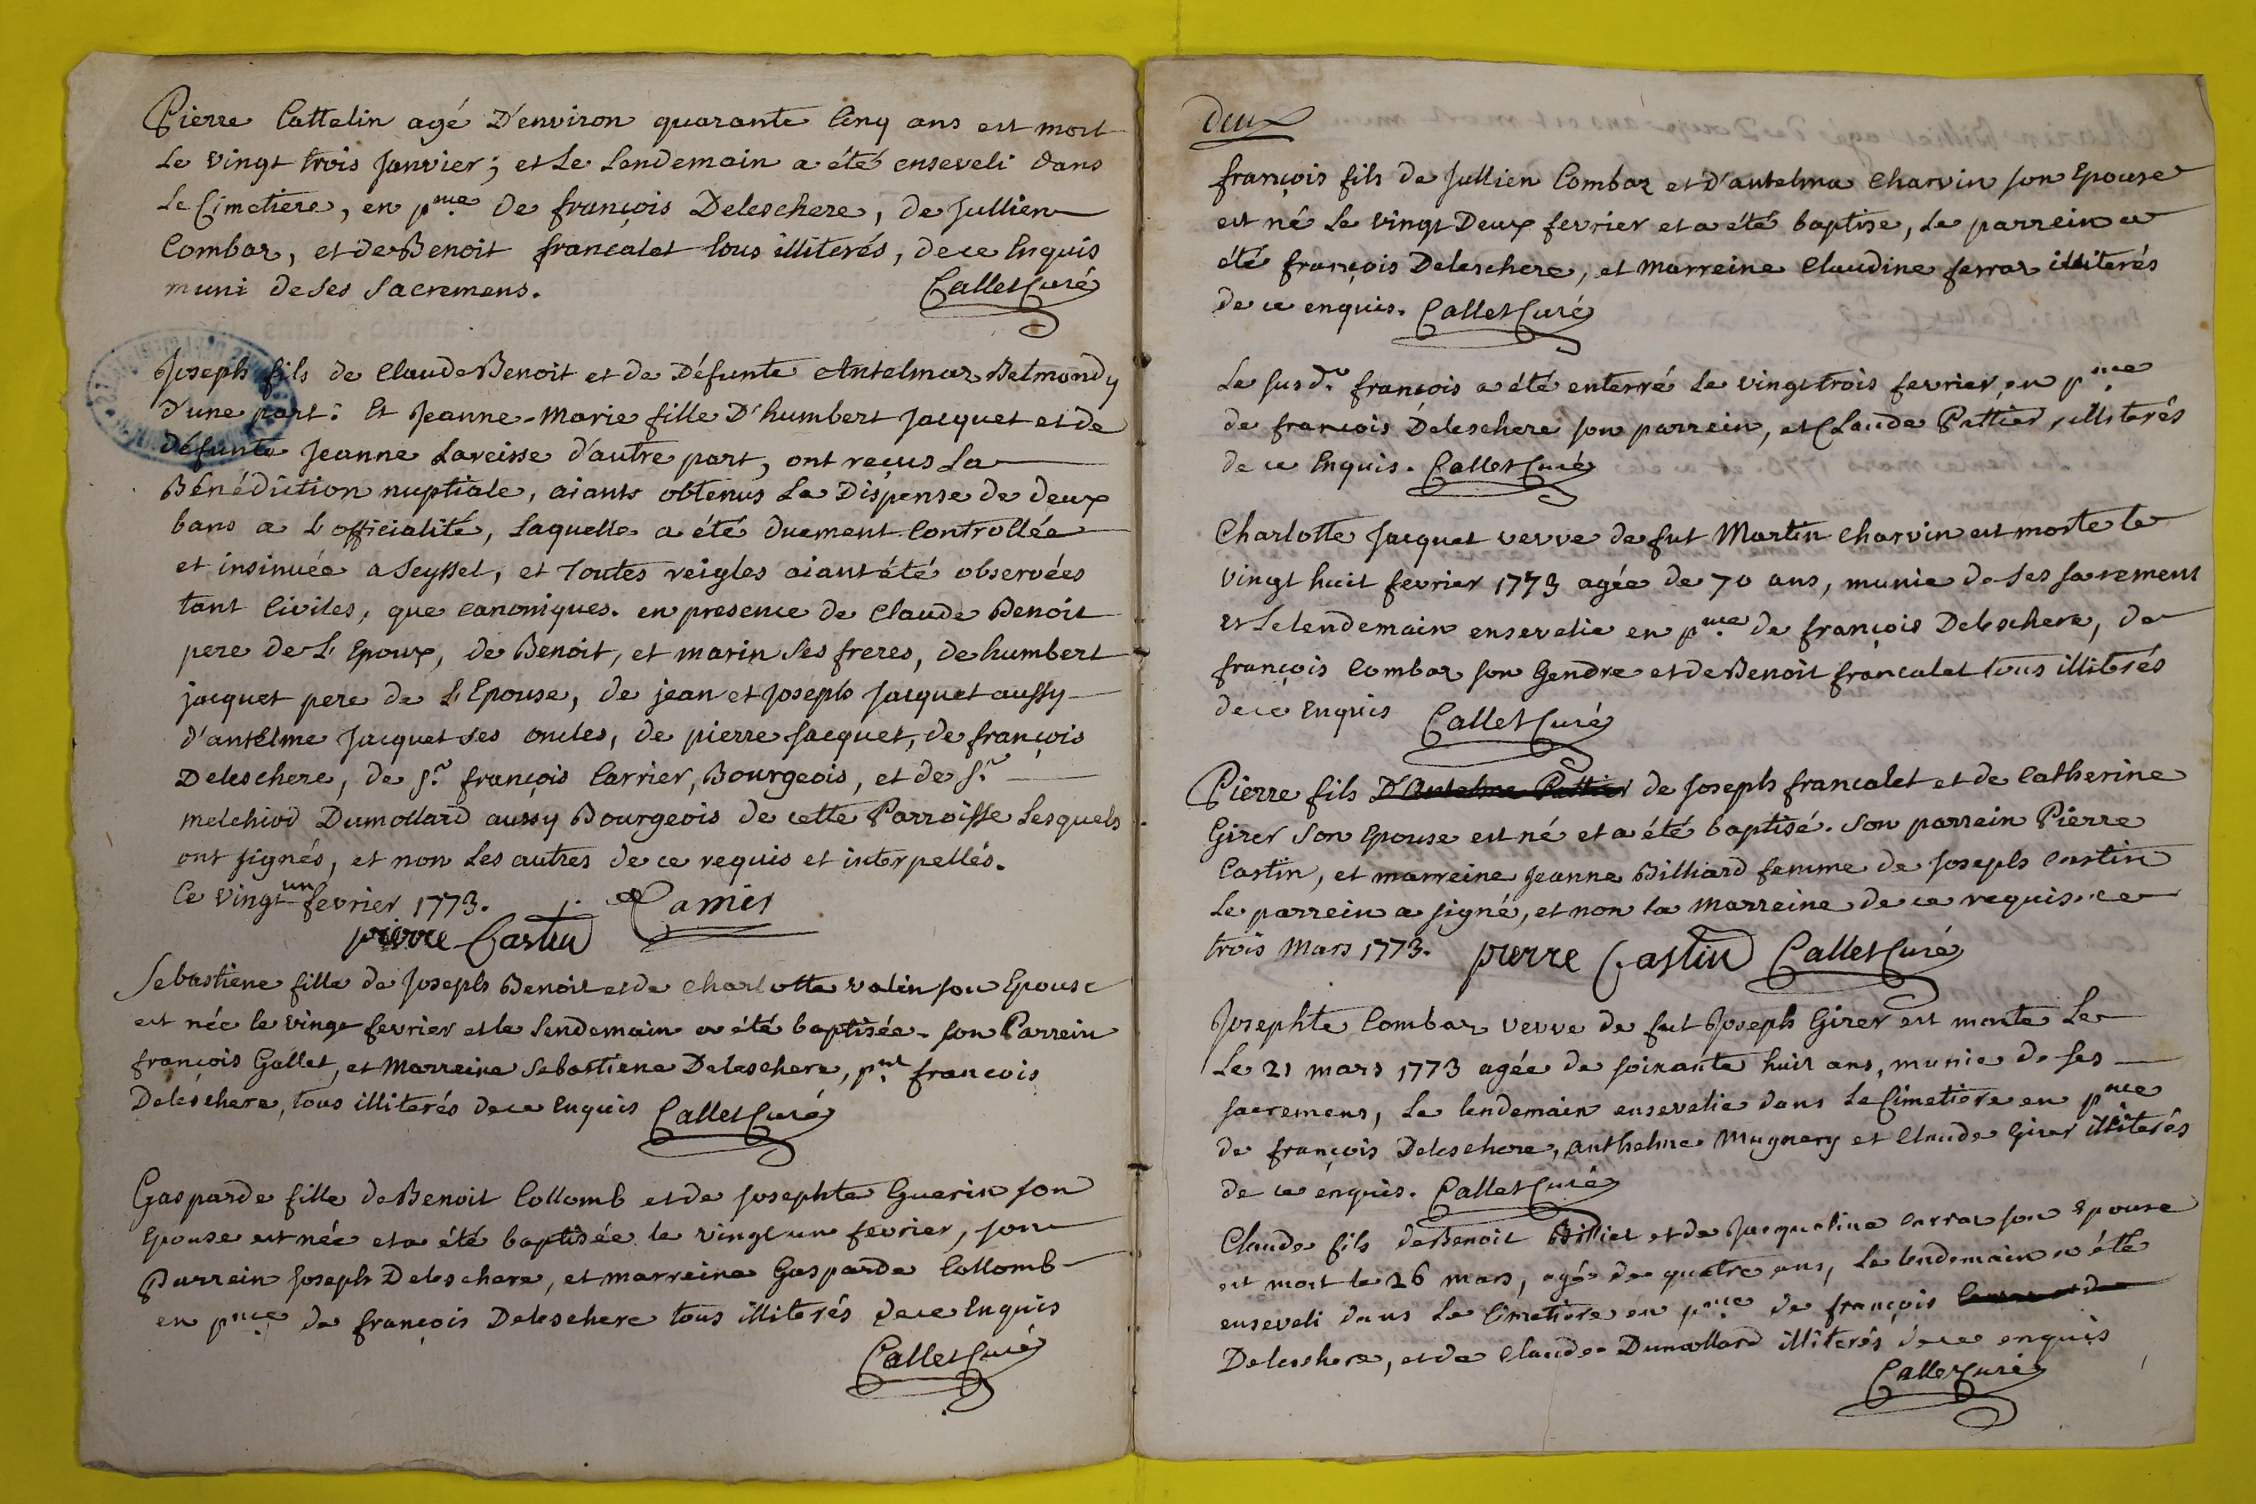 Pierre Cattelin agé D'environ quarante Cinq ans est mort
Le vingt trois Janvier; et Le Lendemain a été enseveli dans
Le Cimetiere, en pnce De françois Deleschere, de Jullien
Combaz, et de Benoit francalet tous illiterés, de ce Enquis
muni de ses sacremens. Callet Curé
Joseph fils de Claude Benoit et de Défunte Antelmaz Belmondy
d'une part: Et Jeanne-Marie fille D'humbert Jacquet et de
défunte Jeanne Laveisse d'autre part, ont reçus La
Bénédiction nuptiale, aiants obtenus La Dispense de deux
bans a L'officialité, Laquelle a été duement Controllée
et insinuée a Seyssel, et Toutes reigles aiant été observées
tant Civiles, que canoniques. en presence de Claude Benoit
pere de L'Epoux, de Benoit, et marin ses freres, de humbert
jacquet pere de L'Epouse, de jean et Joseph Jacquet aussy
d'antelme Jacquet ses oncles, de pierre Jacquet, de françois
Deleschere, de Sr françois Carrier, Bourgeois, et de Sr
melchiod Dumollard aussy Bourgeois de cette Parroisse Lesquels
ont signés, et non Les autres de ce requis et interpellés.
Ce vingt un fevrier 1773.
pierre Castin
Sebastiene fille de Joseph Benoit et de Charlotte valin son Epouse
est née le vingt fevrier et le lendemain a été baptisée. son Parrein
françois Gallet, et Marreine Sebastiene Deleschere, pnt françois
Deleschere, tous illiterés de ce Enquis Callet Curé
Gasparde fille de Benoit Collomb et de Josephte Guerin son
Epouse est née et a été baptisée le vingt un fevrier, son
Parrein Joseph Deleschere, et marreine Gasparde Collomb
en pnce de françois Deleschere tous illiterés de ce Enquis
Callet Curé
deux
françois fils de Jullien Combaz et d'antelma Charvin son Epouse
est né Le vingt Deux fevrier et a été baptise, Le parrein a
été françois Deleschere, et marreine Claudine ferraz illiterés
de ce enquis. Callet Curé
Le susdt françois a été enterré Le vingt trois fevrier, en pnce
de françois Deleschere son parrein, et Claude Pattier, illiterés
de ce Enquis. Callet Curé
Charlotte Jacquet vevve de fut Martin Charvin est morte le
vingt huit fevrier 1773 agée de 70 ans, munie de ses sacremens
et Le lendemain ensevelie en pnce de françois Deleschere, de
françois Combaz son Gendre et de Benoit francalet tous illiterés
de ce Enquis Callet Curé
Pierre fils D'Antelme Pattier de Joseph francalet et de Catherine
Girer Son Epouse est né et a été baptisé. Son parrein Pierre
Castin, et marreine Jeanne Billiard femme de Joseph Castin
Le parrein a signé, et non la marreine de ce requis. ce
trois Mars 1773. pierre Castin Callet Curé
Josephte Combaz vevve de fut Joseph Girer est morte Le
Le 21 mars 1773 agée de soixante huit ans, munie de ses
sacremens, Le lendemain ensevelie dans Le Cimetiere en pnce
de françois Deleschere, Anthelme Mugnery et Claude Girer illiterés
de ce enquis. Callet Curé
Claude fils de Benoit Billiet et de Jacqueline Carraz son Epouse
est mort le 26 mars, agé de quatre ans, Le lendemain a été
enseveli dans Le Cimetiere en pnce de françois
Deleschere, et de Claude Dumollard illiterés de ce enquis
Callet Curé